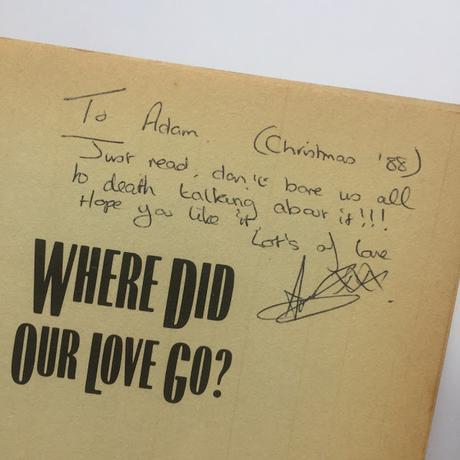 To Adam (Christmas '88)
Just read, don't bore us all
to death talking about it!!!
Hope you like it,
Lot's of love
XXX
WHERE DID
OUR LOVE GO?